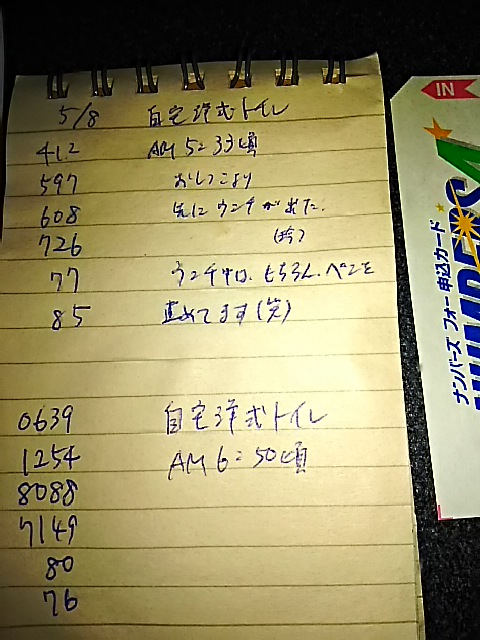 5/8 自宅洋式トイレ
412 AM 5:33頃
597 おしっこより
608 先にウンチが出た。
726 (笑)
77 ウンチ中は、もちろん、ペンを
85 止めてます(笑)
0639 自宅洋式トイレ
1254 AM 6:50頃
8088
7149
80
76
IN
ナンバーズ フォー 申込カード